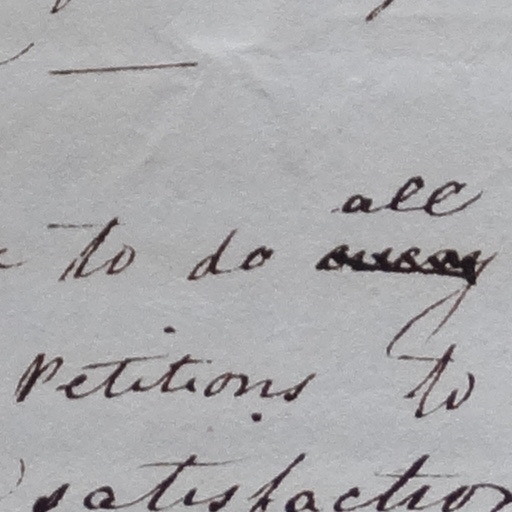 all
to do
Petitions to
satisfaction